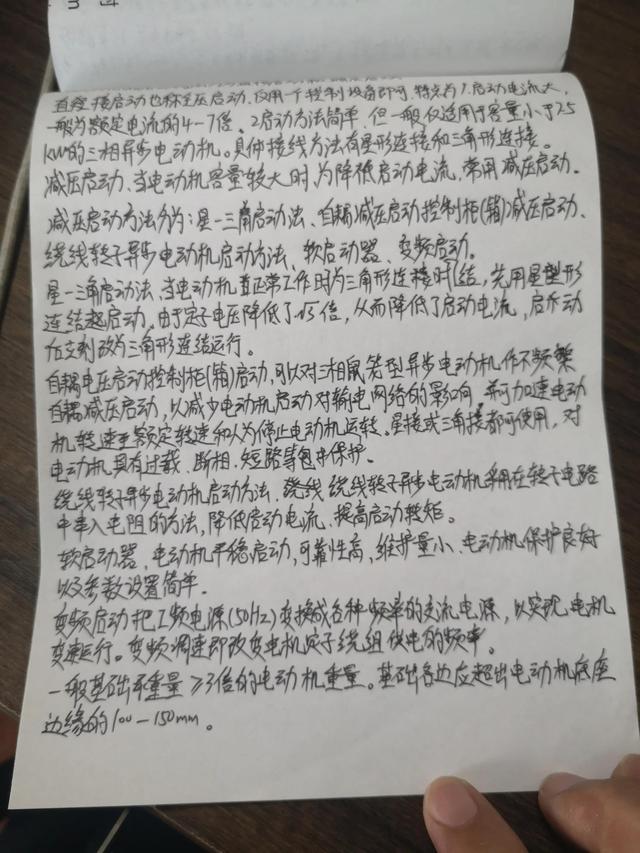 直接接启动也称全压启动.仅用一个控制设备即可.特点为1.启动电流大,
一般为额定电流的4-7倍。2启动方法简单.但一般仅适用于容量小于7.5
kW的三相异步电动机。具体接线方法有星形连接和三角形连接。
减压启动、当电动机容量较大时,为降低启动电流,常用减压启动.
减压启动方法分为:星-三角启动法、自耦减压启动控制柜(箱)减压启动、
绕线转子异步电动机启动方法、软启动器、变频启动。
星-三角启动法、当电动机正常工作时为三角形连接时,先用星型形
连结起启动,由于定子电压降低了√3倍,从而降低了启动电流,启动
在立刻改为三角形连结运行。
自耦电压启动控制柜(箱)启动,可以对三相鼠笼型异步电动机作不频繁
自耦减压启动,以减少电动机启动对输电网络的影响,并可加速电动
机转速至额定转速和人为停止电动机运转。星接或三角接都可使用,对
电动机具有过载、断相.短路等保护。
绕线转子异步电动机启动方法、绕线 绕线转子异步电动机采用在转子电路
中串入电阻的方法,降低启动电流、提高启动转矩。
软启动器、电动机平稳启动,可靠性高,维护量小、电动机保护良好
以及参数设置简单.
变频启动把工频电源(50Hz)变换成各种频率的交流电源,以实现电机
变速运行。变频调速即改变电机定子绕组供电的频率。
一般基础重量≥3倍的电动机重量。基础各边应超出电动机底座
边缘的100-150mm。